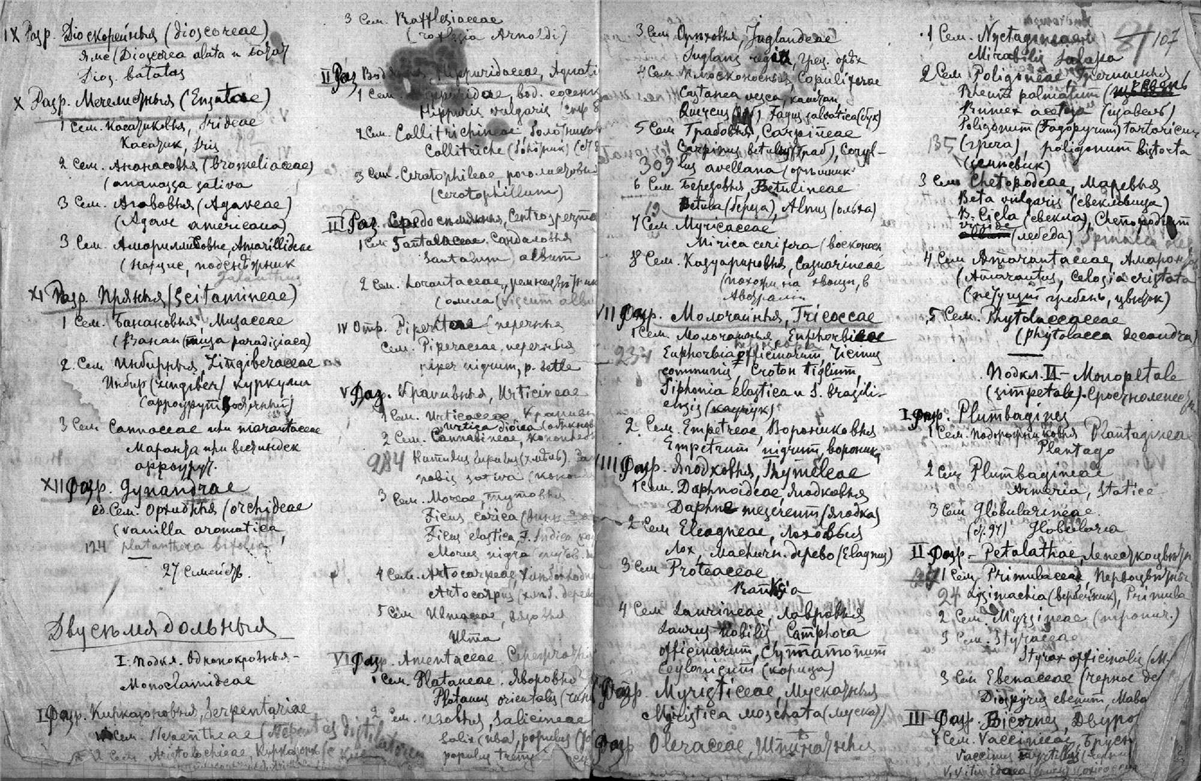 IX Разр. Дioскорейныя (Dioscoreae)
Ямс (Dioscorea alata и
Dios. batatas
X Разр. Мечелистныя (Ensatae)
1 Сем. Касатиковыя, Irideae
Касатик, Iris
2 Сем. Ананасовыя (Bromeliaceae)
(ananassa sativa
3 Сем. Агововыя (Agaveae)
(Agave americana)
3 Сем. Амариллисовые, Amarillideae
(Нарцис, подснѣжник
Galanthus
XI Разр. Пряныя (Scitamineae)
1 Сем. Банановыя Musaceae
(Банан (musa paradisiaca)
2. Сем Инбирныя, Zingiberaceae
Инбир (zingiber) куркума
(аррорутъ
3 Сем. Cannaceae или marantaceae
Маранта
арроруг.
XII Разр. Gynandrae
ед. Сем. Орхидныя (orchideae
(vanilla aromatica,
124 platanthera bifolia
27 Семейст.
Двусѣмядольныя
I. Подкл. Однопокровныя -
Monoclamideae
I Разр. Кирказоновыя, Serpentariae
Сем. Nepentheae (Nepentes distilatorea
2 Сем. Aristolochieae Кирказон.
3 Сем. Rafflesiaceae
(raflezia Arnoldi)
II Раз Вод Hippurideae, Aquati
1 Сем. вод. сосенк
Hippuris vulgaris
2 Сем. Callitrichineae Болотников
Callitriche
3 Сем. Ceratophileae роголистовы
(cerotophillum)
III Раз. Средосѣмянныя, Centrosperma
1 Сем. Santalaceae Сандаловыя
Santalum album
2 Сем. Lorantaceae, ремнецвѣтник
(омела (Viscum albu
IV Отр. Piperitae (перечныя
Сем. Piperaceae, перечныя
piper nigrum, p. betle
V Разр. Крапивныя, Urticineae
1 Сем. Urticaceae Крапивн
Urtica dioica
2 Сем. Cannabineae, коноплев
284 Humulus lupulus (хмѣль).
nabis sativa (коноп
3 Сем. Moreae тутовыя
Ficus carica
Ficus elastica F. Indica
Morus nigra
4 Сем. Artocarpeae Хлѣбоплодн
Artocarpus (хлѣб. дерев
5 Сем Ulmaceae вязовыя
Ulmus
VI Разр. Amentaceae Сережчатн
1 Сем. Plataneae. Яворовыя
Platanus orientalis
2 Сем. Ивовыя Salicineae
Salix (ива), populus
populus trem
3 Сем Орѣховыя, Juglandeae
Juglans regia, грец. орѣх
4 Сем. Плюсконосныя, Cupuliferae
Castanea vesca, каштан
Quercus Fagus salvatica (бук)
5 Сем Грабовыя Carpineae
Carpinus betulus (граб), Coryl-
309 lus avellana (орѣшник
6 Сем Березовыя, Betulineae
Betula (береза), Alnus (ольха)
7 Сем. Myricaceae
Mirica cerifera (восконосн
8 Сем. Казуариновыя, Casuarineae
(похожи на хвощи, в
Австралии
VII Разр. Молочайныя, Tricoccae
1 Сем. Молочаиныя, Euphorbiaceae
237 Euphorbia officinarum Ricinus
communis, Croton tiglium
Siphonia elastica и S. brasili-
ensis (каучук)
2. Сем. Empetreae, Ворониковыя
Empetrum nigrum, вороника
VIII Разр. Ягодковыя, Thymeleae
1 Сем. Daphnoideae Ягодковыя
Daphne mezereum (ягодка)
2 Сем Eleagneae, Лоховыя
Лох, Маслич. дерево (Eleagnus)
3 Сем Proteaceae
Banksia
4 Сем Laurineae, Лавровыя
Laurus nobilis Camphora
officinarum, Cynnamomum
Ceylonicum (корица)
Разр. Myristiceae, Мускатныя
Myristica moschata (мускат)
Разр. Oleraceae, Шпинатныя
81 107
1 Сем. Nyctagineae
Mirabilis Jalapa
2 Сем. Poligoneae, Гречишныя
Rheum palmatum (ревень
Rumex acetosa (щавель)
Poligonum (Fagopyrum) tartaricus
135 (греча), poligonum bistorta
(змѣевик)
3 Сем Chetopodeae, Маревыя
Beta vulgaris (свекловица)
B. Cicla (свекла), Chenopodium
viride (лебеда)
4 Сем. Amarantaceae, Амарант
(Amarantus, Celosia cristata
(пѣтуший гребень, цвѣток)
5. Сем. Phytolaccaceae
(phytolacca decandra)
Подкл. II - Monopetale
(simpetale). Сростнолепест
I Разр. Plumbagines
1 Сем. Подорожниковыя Plantagineae
Plantago
2 Сем Plumbagineae
Armeria, Statice
3 Сем Globularineae.
(ср. 97) Globularia
II Разр - Petalathae, Лепесткоцвѣтн
1 Сем. Primulaceae Первоцвѣтныя
24 Lysinachia (вербейник), Primula
2 Сем. Myrsineae (тропич.)
3 Сем. Styraceae
Styrax officinalis
3 Сем. Ebenaceae (черное де
Diospyrus ebenum
III Разр. Bicornes Двурог
1 Сем. Vaccineae, Брусн
Vaccinus myrtillus
V. Vitis Idaea